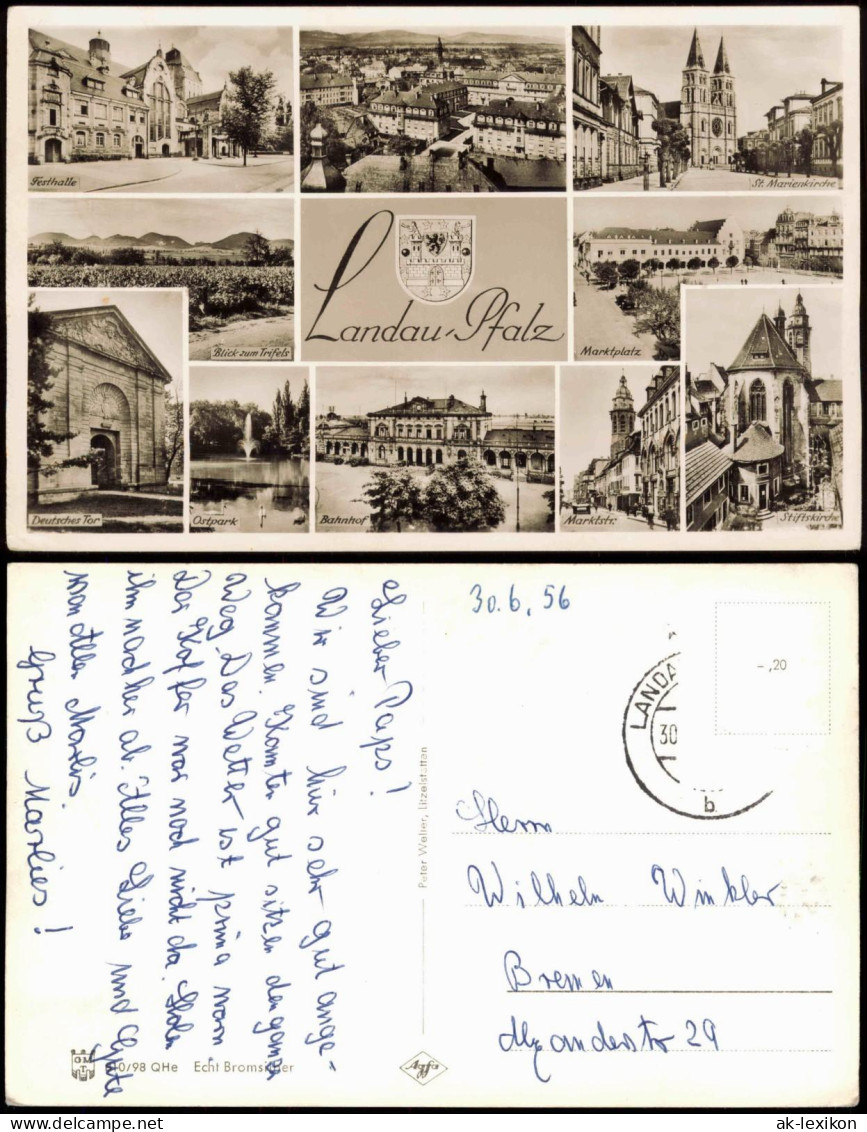 Festhalle
St. Marienkirche
Blick zum Trifels
Landau-Pfalz
Marktplatz
Deutsches Tor
Ostpark
Bahnhof
Marktstr.
Stiftskirche
Lieber Paps!
Wir sind hier sehr gut ange-
kommen. Konnten gut sitzen den ganzen
Weg. Das Wetter ist prima warm.
Der Koffer war noch nicht da. Holen
ihn nachher ab. Alles Liebe und Gute
von allen
Gruß Marlies!
Peter Walter, Litzelstetten
30.6.56
-,20
LANDA
30
b
Herrn
Wilhelm Winkler
Bremen
29
510/98 QHe Echt Bromsilber
Agfa
delcampe.net
ak-lexikon